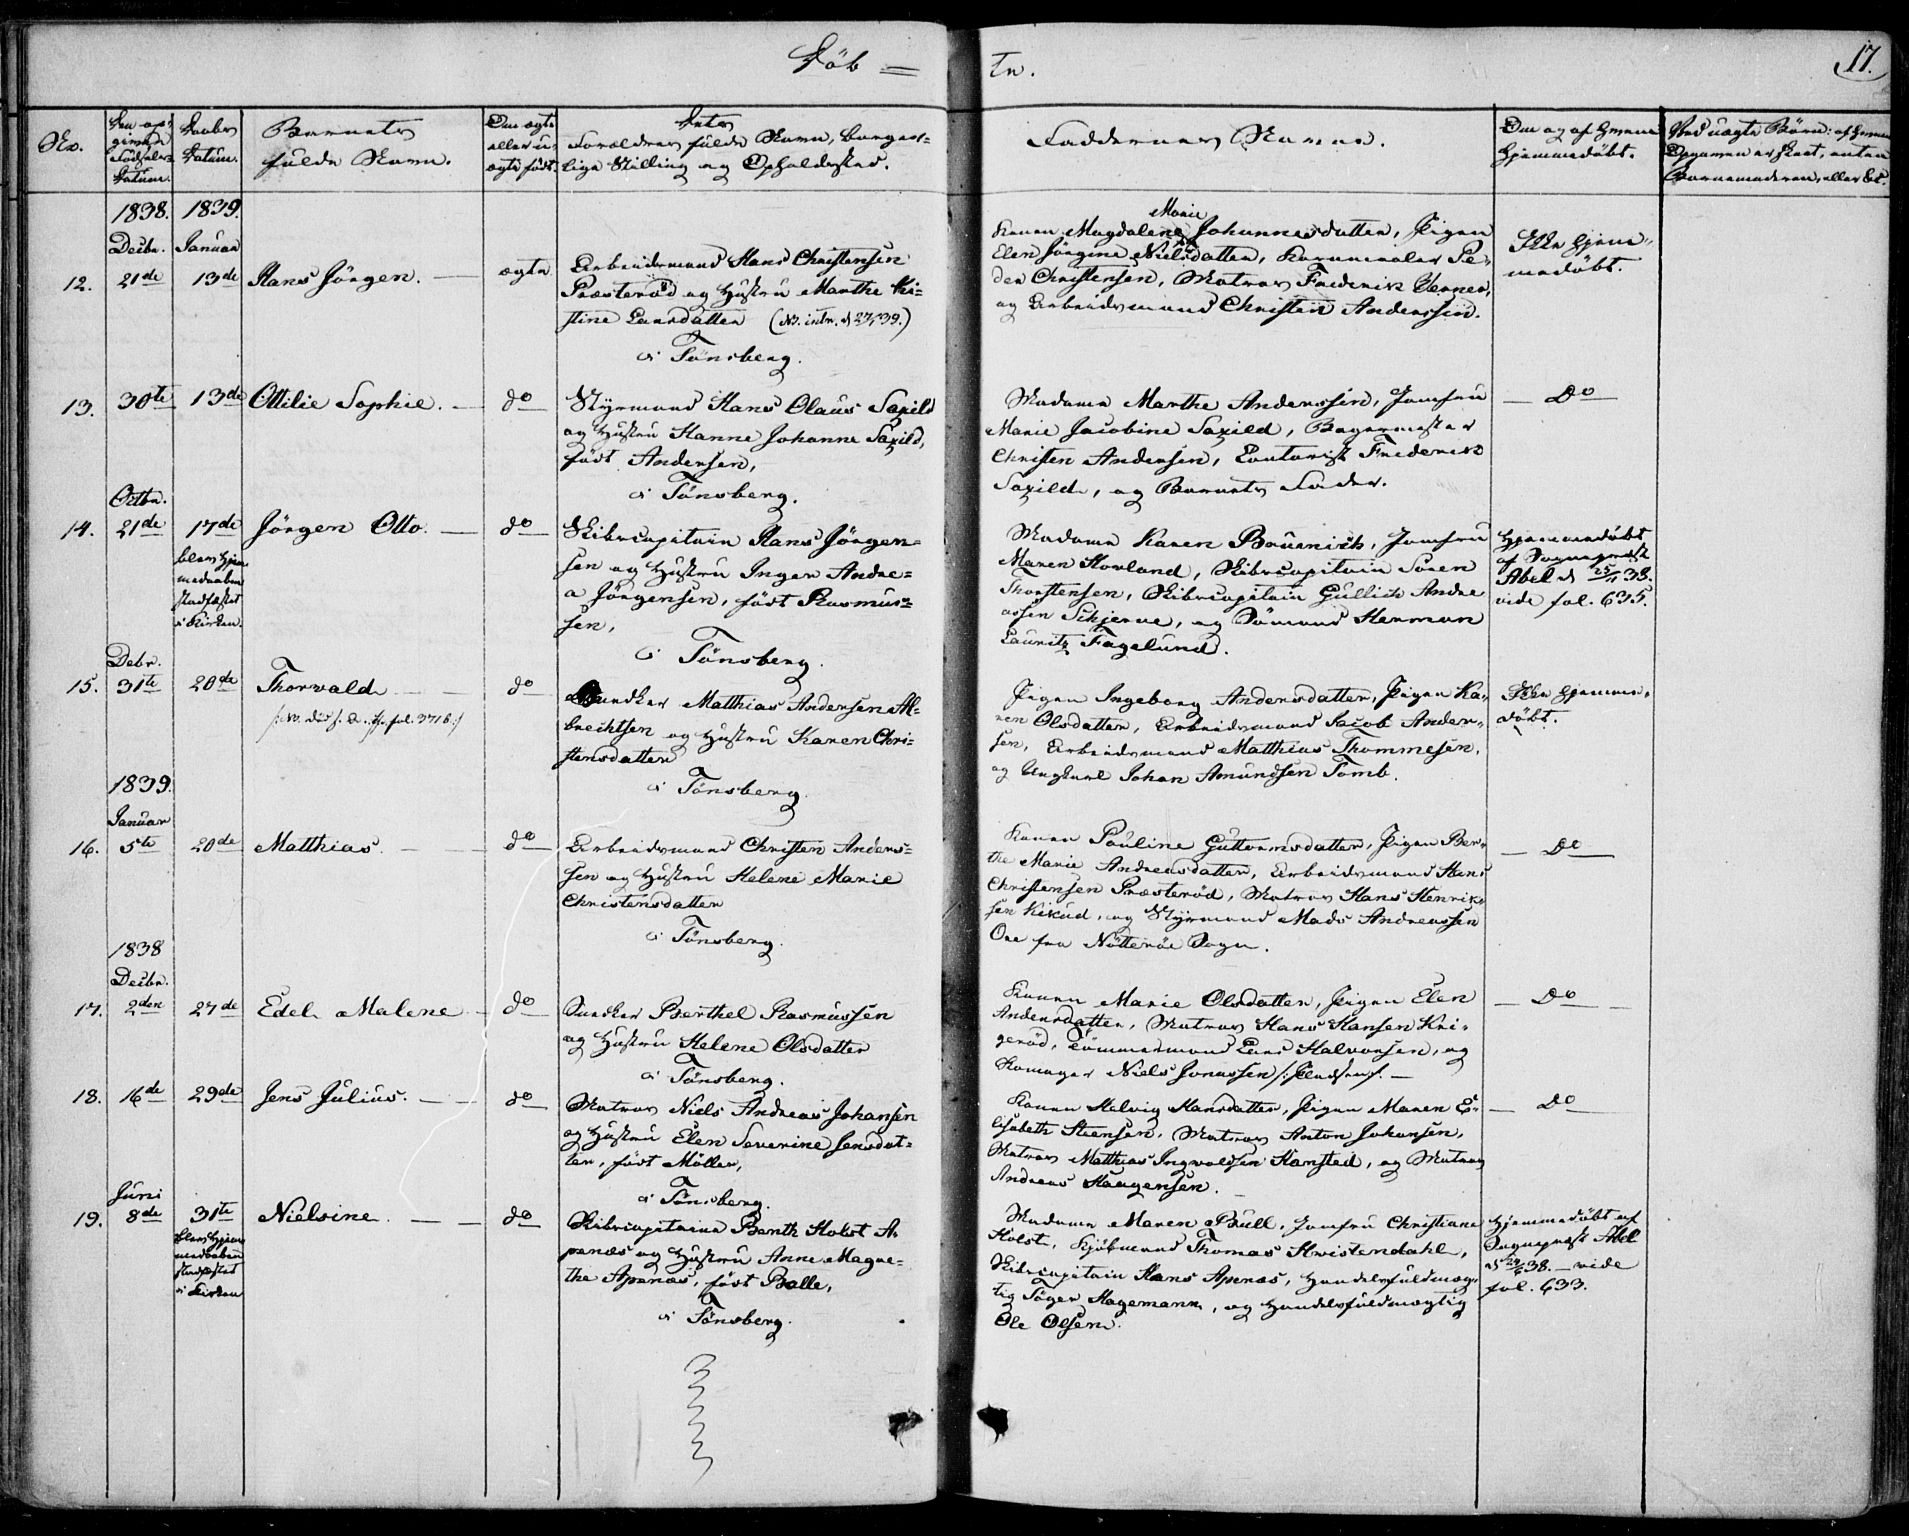 Döb = te.
17.
No.
Den op-
givne
Fødsels-
Datum.
Daabens
Datum.
Barnets
fulde Navn.
Om ægte
eller u-
ægte født.
Dets
Forældres fulde Navn, borger-
lige Stilling og Opholdssted.
Faddernes Navne.
Om og af hvem
hjemmedöbt.
1838. 1839.
Decbr. Januar
12. 21de 13de Hans Jörgen. — ægte
Arbeidsmand Hans Christensen
Præsteröd og Hustru Marthe Ki-
stine Larsdatter (NB. intr. d 27/1 39.)
i Tönsberg.
Marie
Konen Magdalene Johannesdatter, Pigen
Elen Jörgine Nielsdatter, Kornmaaler Pe-
der Christensen, Matros Frederik Verner,
og Arbeidsmand Christen Anderssen.
Ikke hjem-
medöbt.
13. 30te 13de Ottilie Sophie. — do
Styrmand Hans Olaus Saxild
og Hustru Hanne Johanne Saxild,
født Andersen,
i Tönsberg.
Madame Marthe Anderssen, Jomfru
Marie Jacobine Saxild, Bagermester
Christen Andersen, Contorist Frederik
Saxild, og Barnets Fader.
— Do —
Octbr.
14. 21de 17de Jörgen Otto. — do
blev hjem-
medaaben
stadfæstet
i Kirken.
Skibscapitain Hans Jörgen-
sen og Hustru Inger Andre-
a Jörgensen, født Rasmus-
sen,
i Tönsberg.
Madame Karen Bruenich, Jomfru
Maren Hovland, Skibscapitain Sören
Thorstensen, Skibscapitain Gullich Andre
assen Schjerve, og Sömand Herman
Lauritz Fagelund.
Hjemmedöbt
af Sognepræst
Abel d 25/11 38.
vide fol. 635.
Debr.
15. 31te 20de Thorvald — — do
Matthias Andersen Al-
brechtsen og Hustru Karen Chri-
stensdatter
i Tönsberg.
Pigen Ingeborg Andersdatter, Pigen Ka-
ren Olsdatter, Arbeidsmand Jacob Ander-
sen, Arbeidsmand Matthias Thommesen,
og Ungkarl Johan Amundsen Tomb.
Ikke hjemme-
döbt.
1839.
Januar
16. 5te 20de Matthias. — — do
Arbeidsmand Christen Anders-
sen og Hustru Helene Marie
Christensdatter
i Tönsberg.
Konen Pauline Guttormsdatter, Pigen Ber-
the Marie Andreasdatter, Arbeidsmand Hans
Christensen Præsteröd, Matros Hans Henrik-
sen Kikud, og Styrmand Mads Andreassen
Ore fra Nötteröe Sogn.
— Do —
1838
Decbr.
17. 2den 27de Edel Malene — do
Snedker Berthel Rasmussen
og Hustru Helene Olsdatter
i Tönsberg.
Konen Marie Olsdatter, Pigen Elen
Andersdatter, Matros Hans Hansen Kri-
geröd, Tömmermand Lars Halvorsen, og
Skomager Niels Jonassen
— Do —
18. 16de 29de Jens Julius. — — do
Matros Niels Andreas Johansen
og Hustru Elen Severine Jensdat-
ter, født Möller,
i Tönsberg.
Konen Helvig Hansdatter, Pigen Maren E-
lisabeth Steensen, Matros Anton Johansen,
Matros Matthias Ingvaldsen Hamsted, og Matros
Andreas Haagensen.
— Do
Juni
19. 8de 31te Nielsine. — — do
blev hjem-
medaaben
stadfæstet
i Kirken
Skibscapitain Benth Holst A-
penæs og Hustru Anne Magre-
the Apenæs, født Balle,
i Tönsberg.
Madame Maren Bull, Jomfru Christiane
Holst, Kjöbmand Thomas Kvistendahl,
Skibscapitain Hans Apenæs, Handelsfuldmæg-
tig Söger Hagemann, og Handelsfuldmægtig
Ole Olsen.
Hjemmedöbt af
Sognepræst Abel
38. — vide
fol. 633.